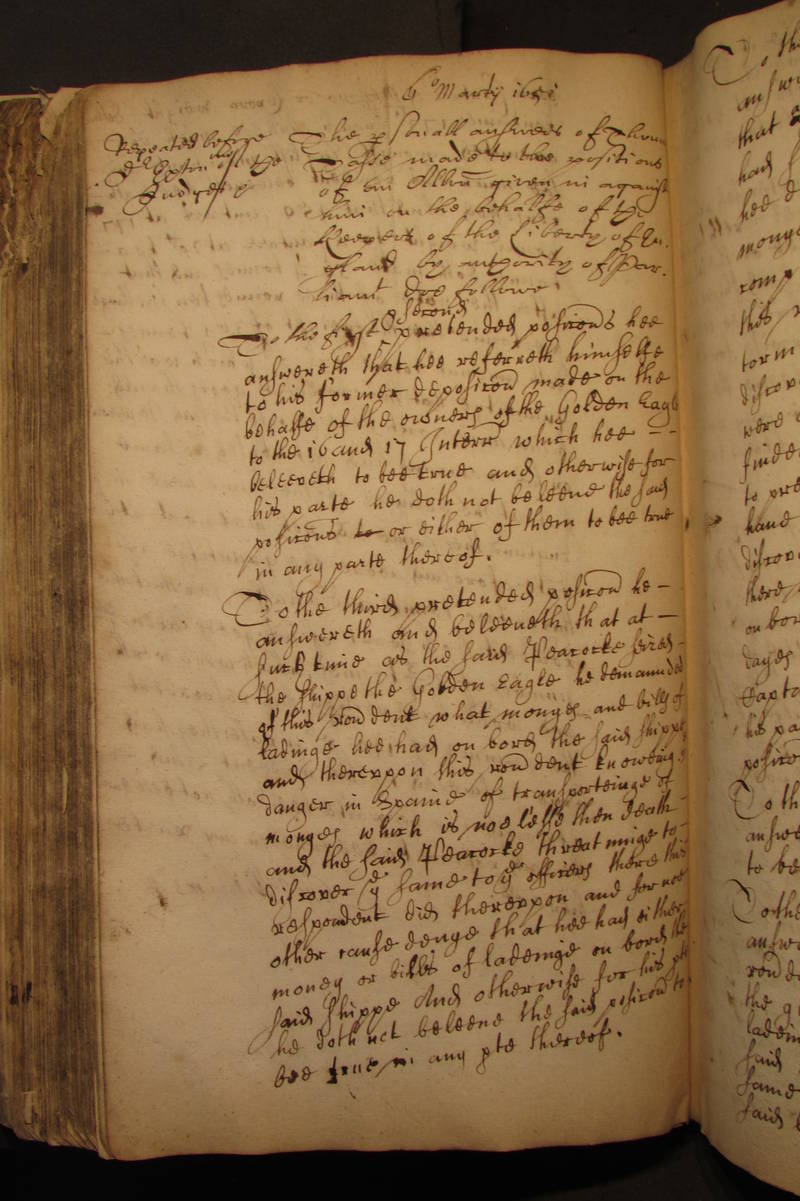 6o Martij 1651
Repeated before
Dr Exton one of the
Judges &c
The personall answers of Thom
made to the positions
of an Allon given in against
him on the behalfe of the
Keepers of the Liberty of En-
gland by authority of Par-
liamt doe followe
second
To the first & pretended positions hee
answereth that hee referreth himselfe
to his former deposition made on the
behalfe of the owners of the Golden Eagle
to the 16 and 17 Interr which hee --
beleeveth to bee true and otherwise for
his parte he doth not beleeve the said
positions to or either of them to bee true
in any parte thereof.
To the third pretended position he -
answereth and beleeveth that at -
such time as the said Peacocke seized -
the shippe the Golden Eagle he demaunded
of this rondent what monyes and bills of
ladinge hee had on bord the said shippe
and thereupon this rondent knoweing ye
danger in Spaine of transporteinge of
monyes which is noe lesse then death -
and the said Peacocke threatninge to -
discover ye same to ye officers there this
respondent did thereupon and for noe
other cause denye that hee had either
money or bills of ladeinge on bord the
said shippe And otherwise for his pte
he doth not beleeve the said position to
bee true in any pte thereof.
To th
answ
that
had
hee d
monye
comp
this
torm
discov
were
finde
to pre
have
discov
there
on bor
dayes
Capta
his pa
positio
To th
answe
to be
To the
answ
ronde
the
ladein
said
same
said